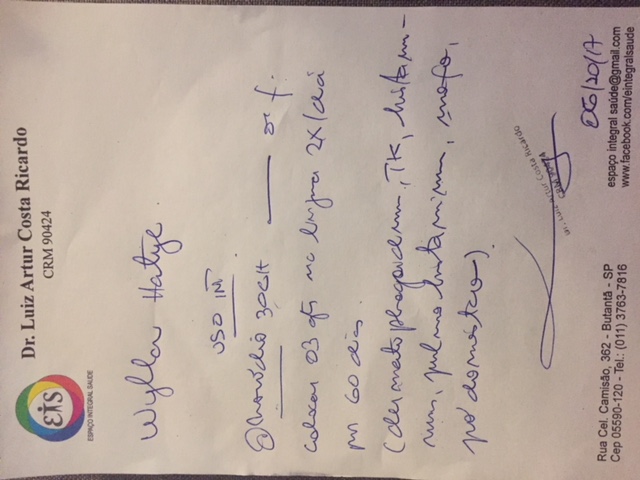 EIS
ESPAÇO INTEGRAL SAÚDE
Dr. Luiz Artur Costa Ricardo
CRM 90424
Wylla
USO INT
30CH
colocar 03 gts na língua 2X/dia
por 60 dias.
(dermatophagoidum, TK, histami-
num, pulmo histaminum, mofo,
pó doméstico)
Dr. Luiz Artur Costa Ricardo
CRM 90424
06/20/17
Rua Cel. Camisão, 362 - Butantã - SP
Cep 05590-120 - Tel.: (011) 3763-7816
espaço integral saúde@gmail.com
www.facebook.com/eintegralsaude